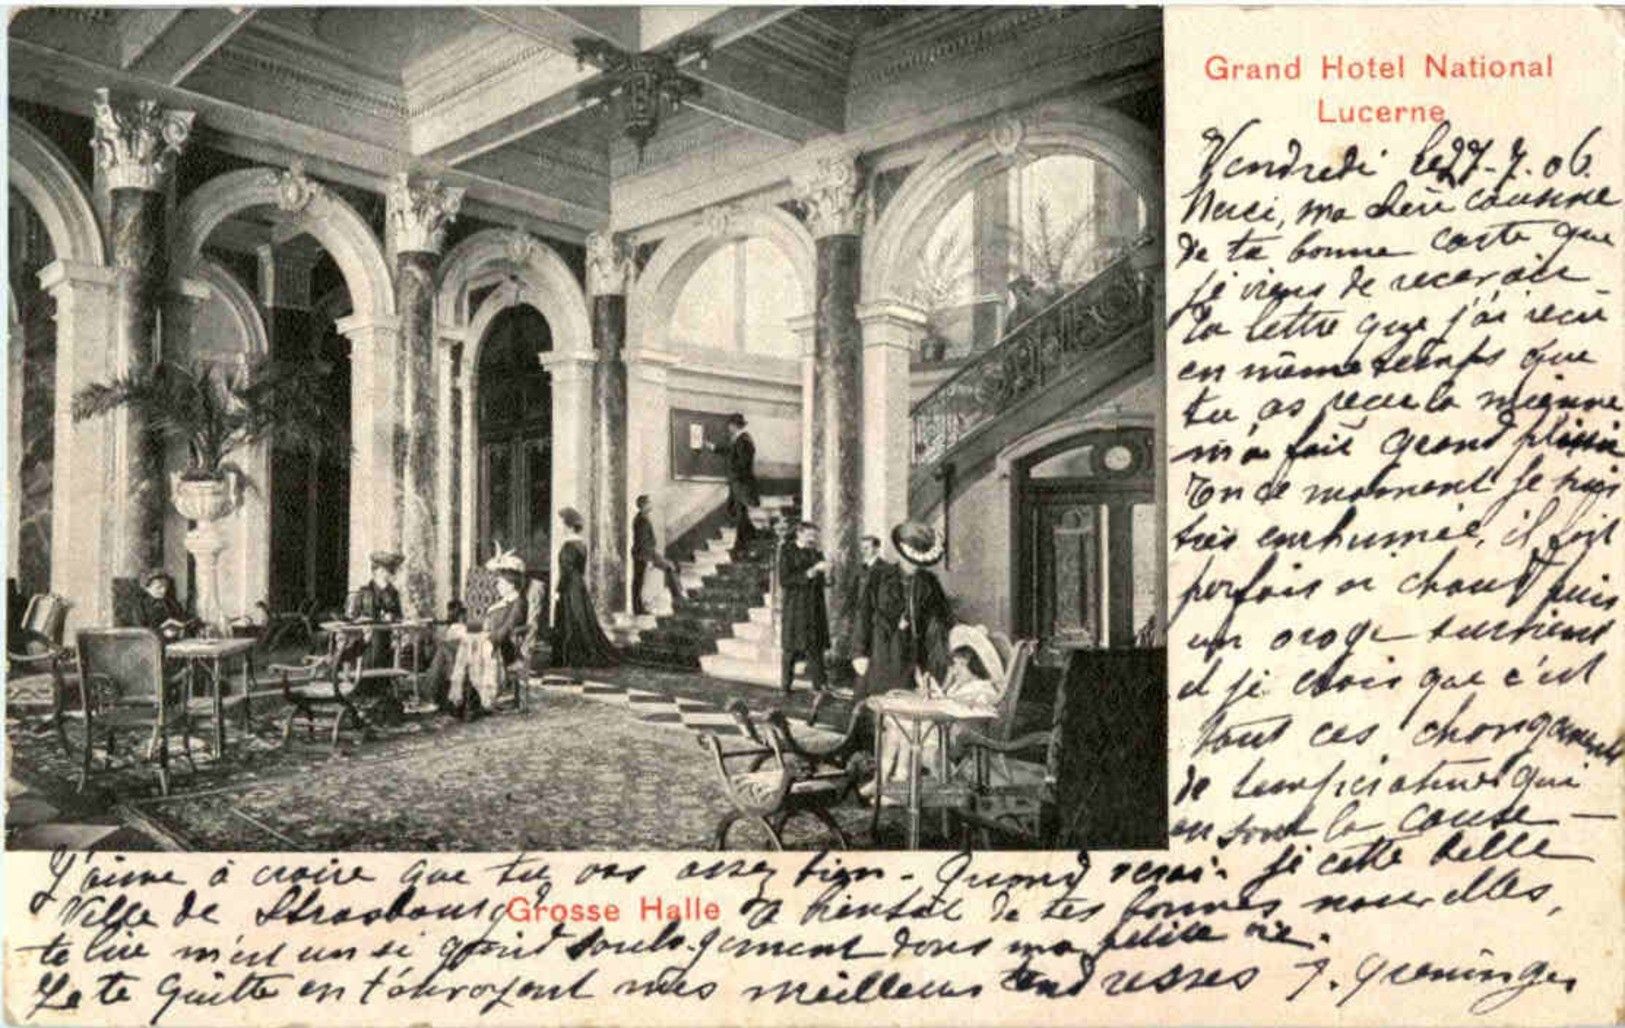 Grand Hotel National
Lucerne
Vendredi le 27-7.06.
Merci, ma chère cousine
de ta bonne carte que
je viens de recevoir -
Ta lettre que j'ai reçu
en même temps que
tu as reçu la mienne
m'a fait grand plaisir
En ce moment je suis
très enrhumée, il fait
parfois si chaud puis
un orage survient
et je crois que c'est
tout ces changements
de températures qui
en sont la cause -
J'aime à croire que tu vas assez bien - Quand verai-je cette belle
Ville de Strasbourg? A bientôt de tes bonnes nouvelles,
Grosse Halle
te lire m'est un si grand soulagement dans ma petite vie.
Je te quitte en t'envoyant mes meilleurs tendresses J. Greninger